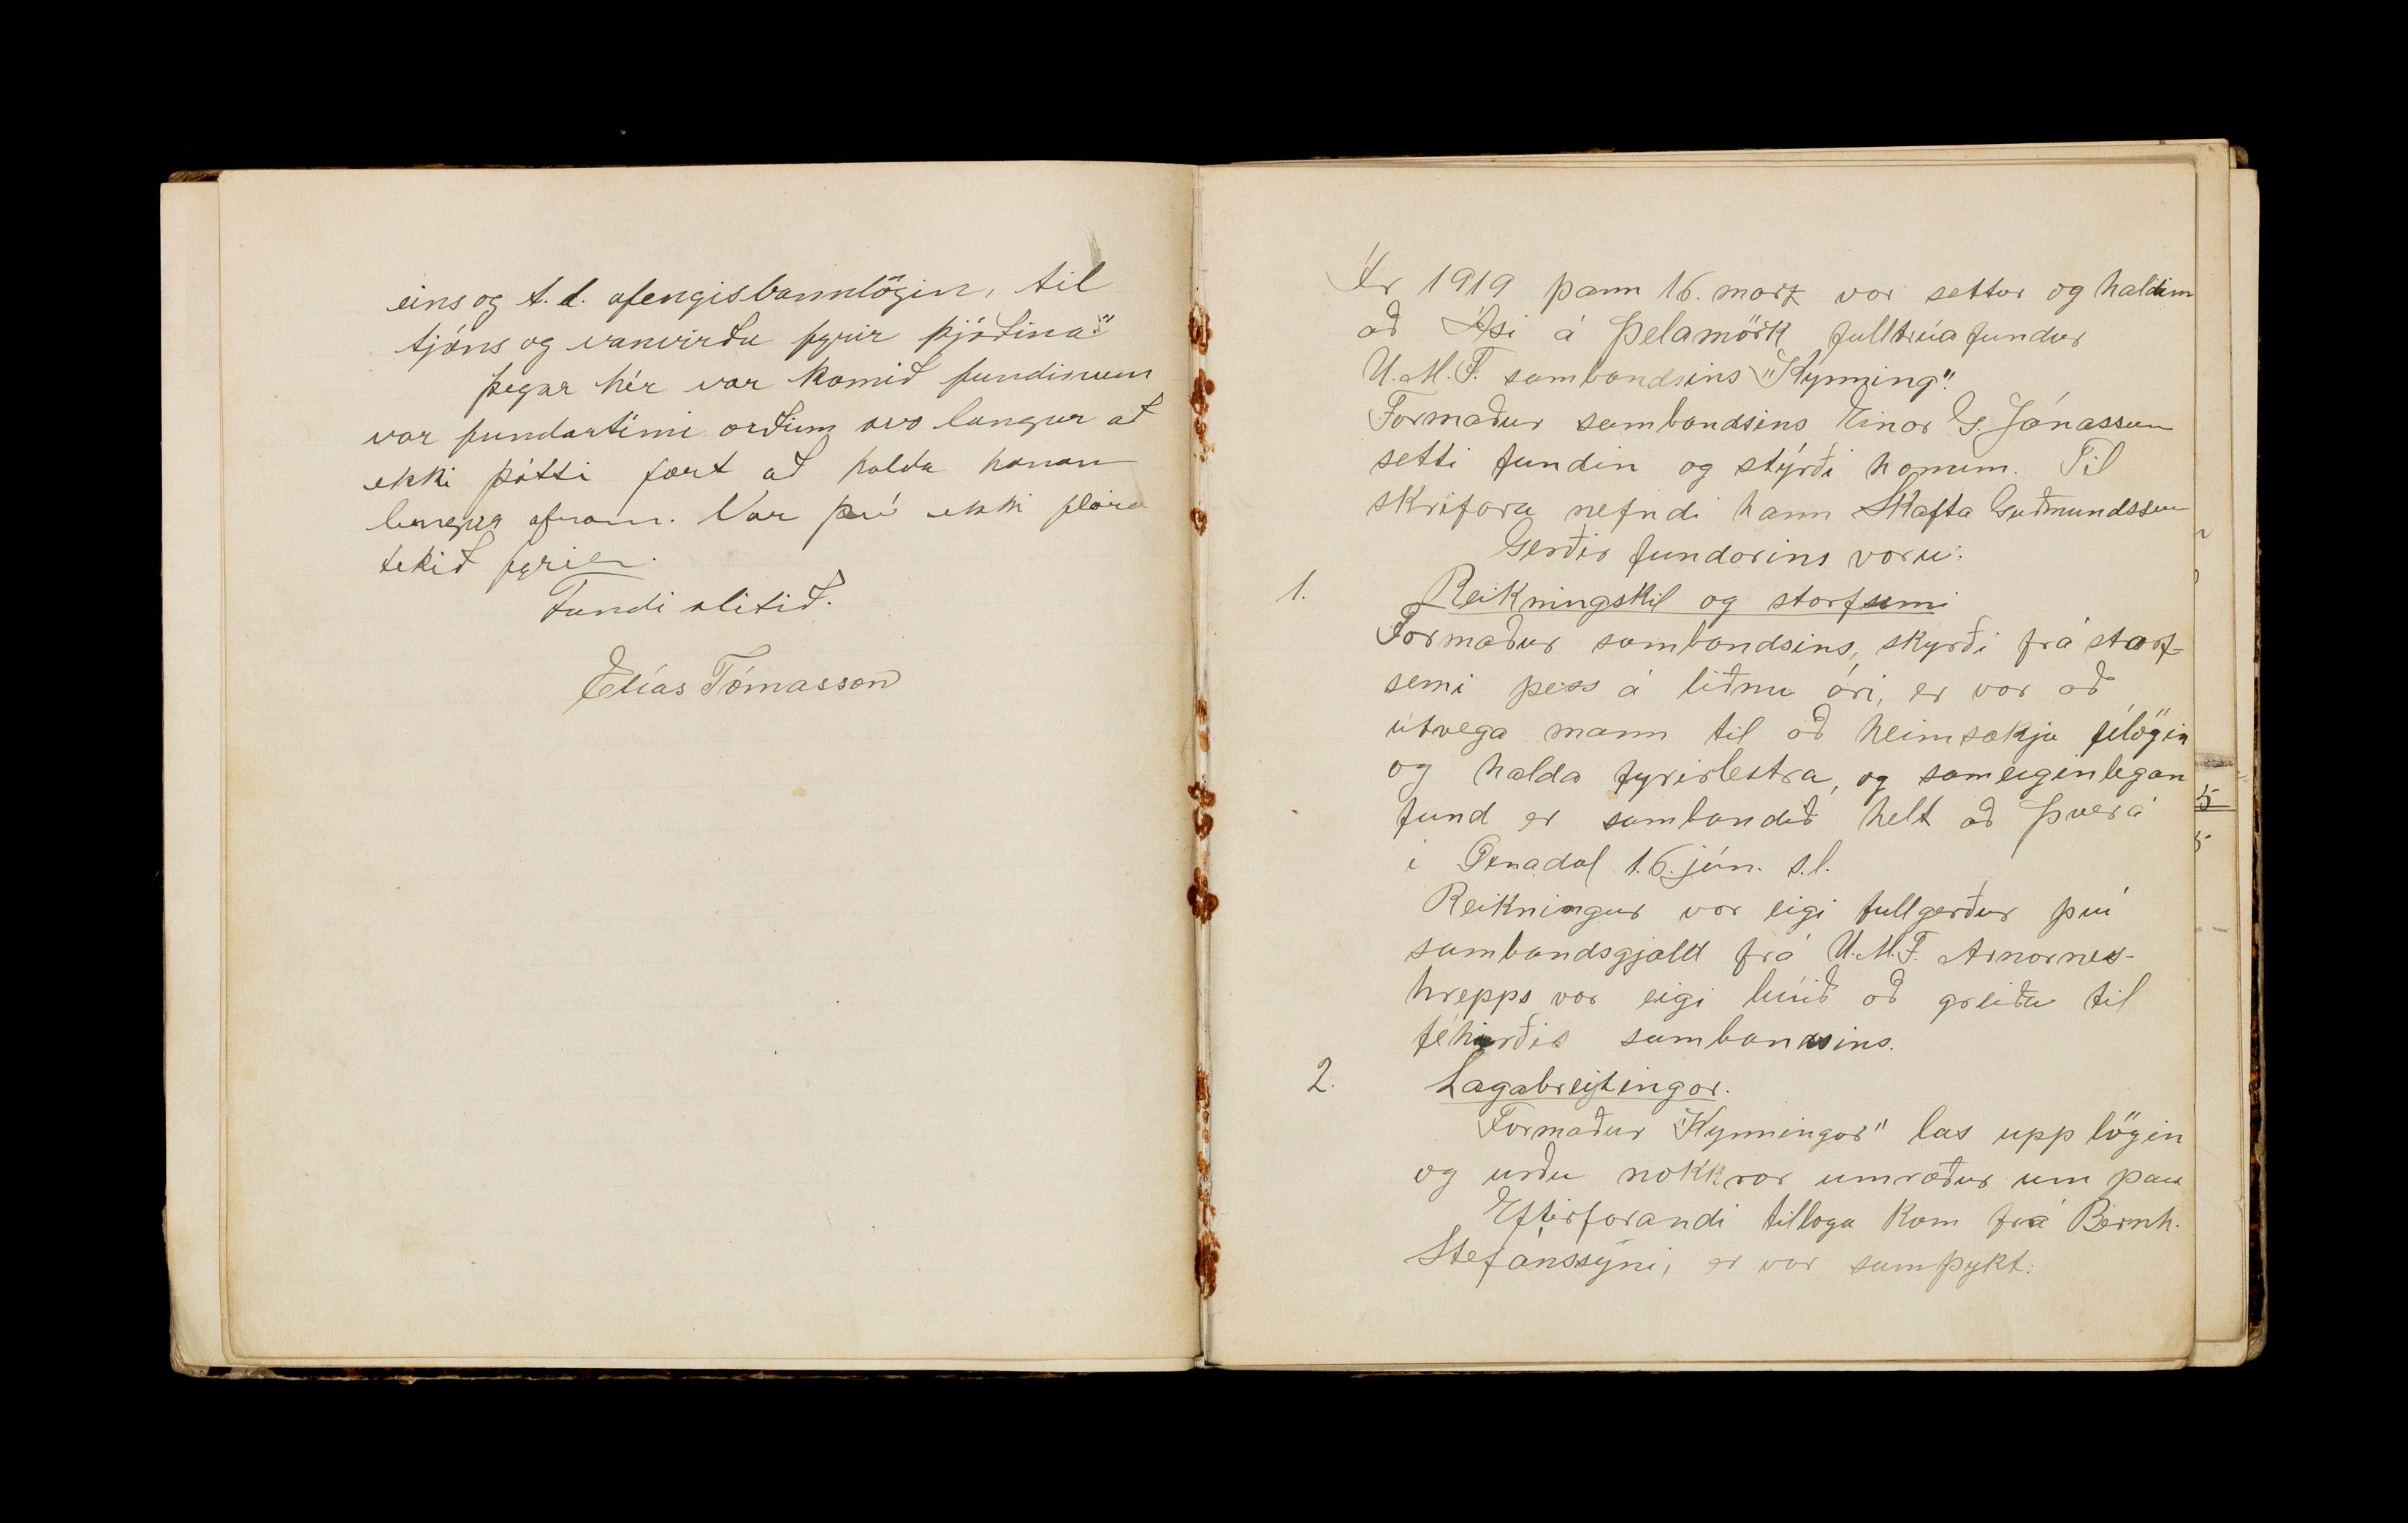 eins og t.d. áfengisbannlögin, til
tjóns og vanvirðu fyrir þjóðina."
Þegar hér var komið fundinum
var fundartími orðinn svo langur að
ekki þótti fært að halda honum
lengur áfram. Var því ekki fleira
tekið fyrir.
Fundi slitið.
Elías Tómasson
Ár 1919 þann 16. marz var settur og haldinn
að Ási á Þelamörk fulltrúafundur
U.M.F. sambandsins "Kynning".
Formaður sambandsins Einar G. Jónasson
setti fundin og stýrði honum. Til
skrifara nefndi hann Skafta Guðmundsson
Gerðir fundarins voru:
1. Reikningskil og starfsemi
Formaður sambandsins, skyrði frá starf-
semi þess á liðnu ári, er var að
útvega mann til að heimsækja félögin
og halda fyrirlestra, og sameiginlegan
fund er sambandið helt að Þverá
í 16. jún. s.l.
Reikningur var eigi fullgerður því
sambandsgjald frá U.M.F. Arnarnes-
hrepps var eigi búið að greiða til
féhirðis sambandsins.
2. Lagabreytingar.
Formaður "Kynningar" las upp lögin
og urðu nokkrar umræður um þau
Eftirfarandi tillaga kom frá Bernh.
Stefánssyni, er var samþykt: